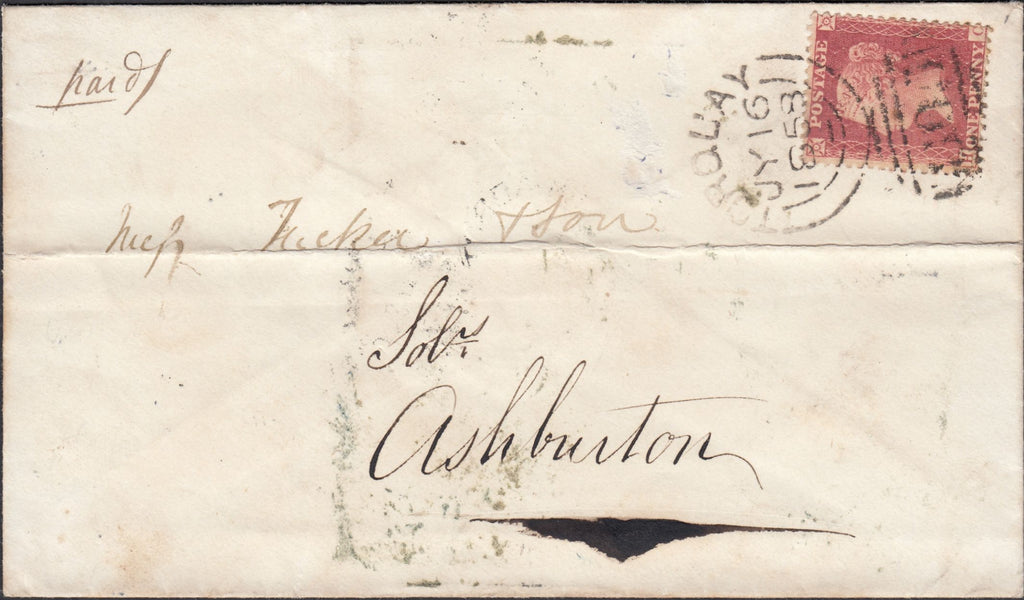 paid
POSTAGE
ONE PENNY
TORQUAY
JY 16
1858
Messrs Tucker & Son
Solrs
Ashburton